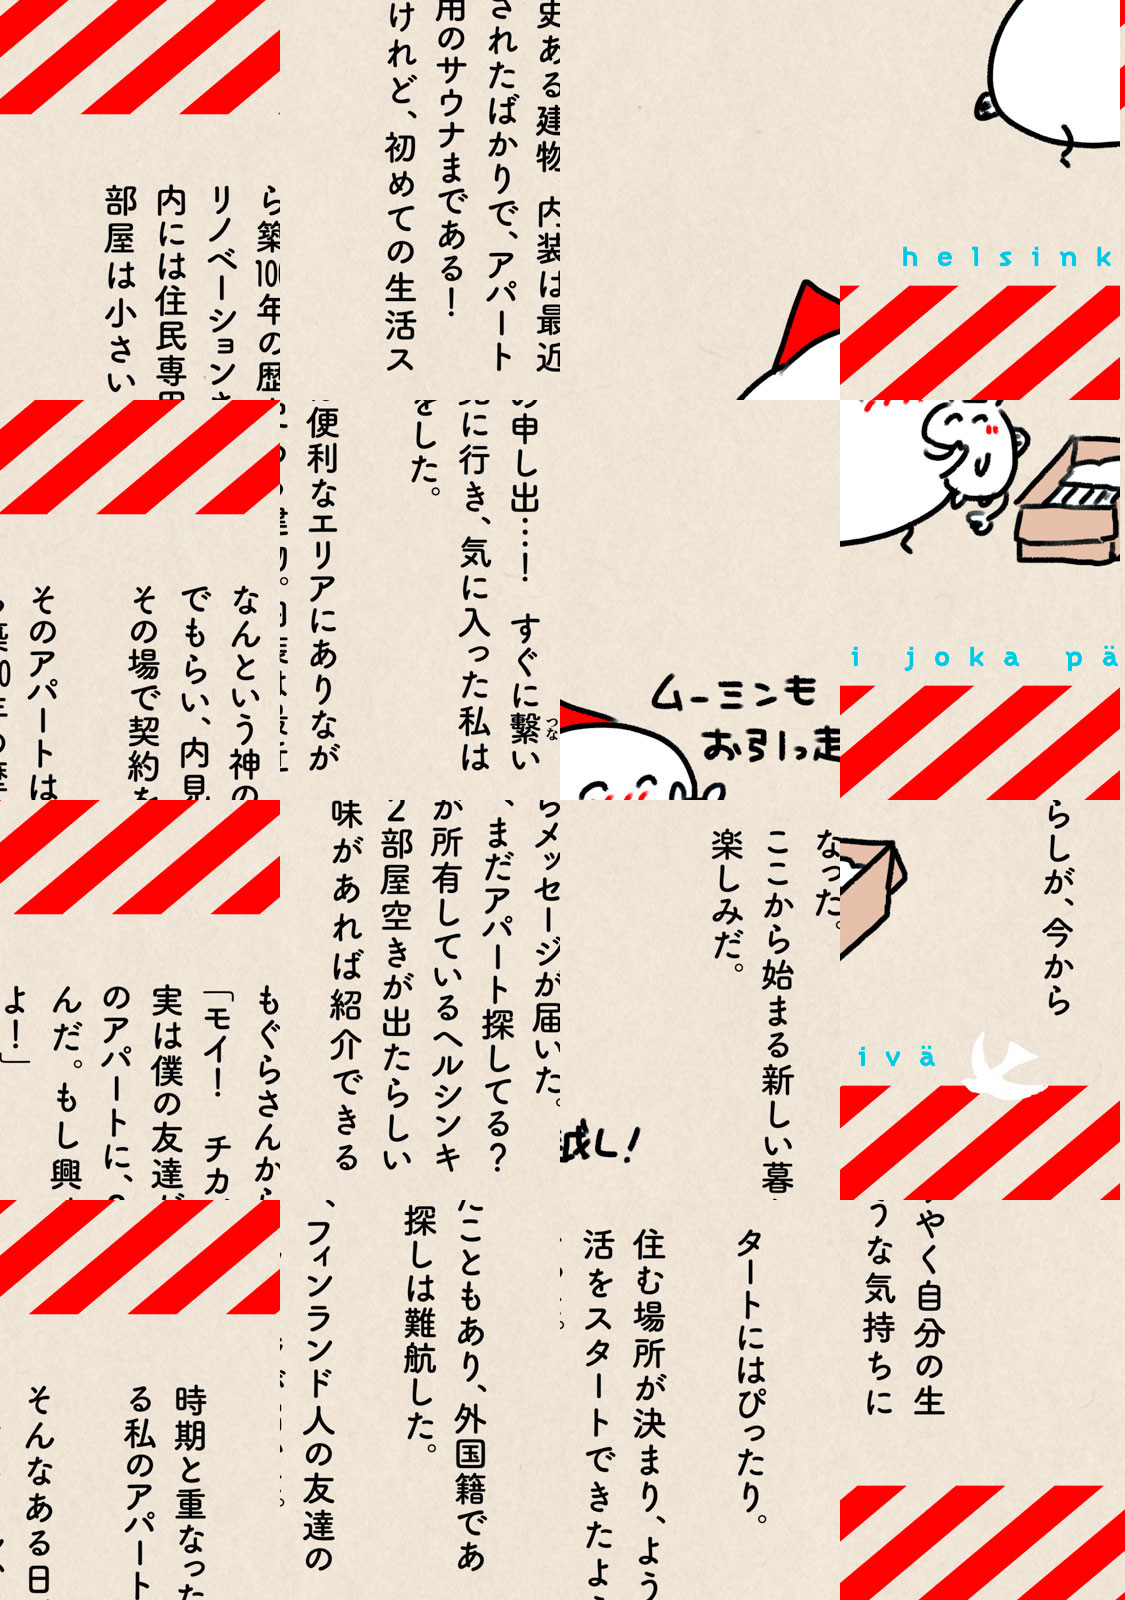 時期と重なったこともあり、外国籍であ
る私のアパート探しは難航した。
そんなある日、フィンランド人の友達の
もぐらさんからメッセージが届いた。
「モイ！　チカ、まだアパート探してる？
実は僕の友達が所有しているヘルシンキ
のアパートに、2部屋空きが出たらしい
んだ。もし興味があれば紹介できる
よ！」
なんという神の申し出…！　すぐに繋い
でもらい、内見に行き、気に入った私は
その場で契約をした。
そのアパートは便利なエリアにありなが
ら築100年の歴史ある建物。内装は最近
リノベーションされたばかりで、アパート
内には住民専用のサウナまである！
部屋は小さいけれど、初めての生活ス
タートにはぴったり。
住む場所が決まり、ようやく自分の生
活をスタートできたような気持ちに
なった。
ここから始まる新しい暮らしが、今から
楽しみだ。
ムーミンも
お引っ越し！
helsinki joka päivä